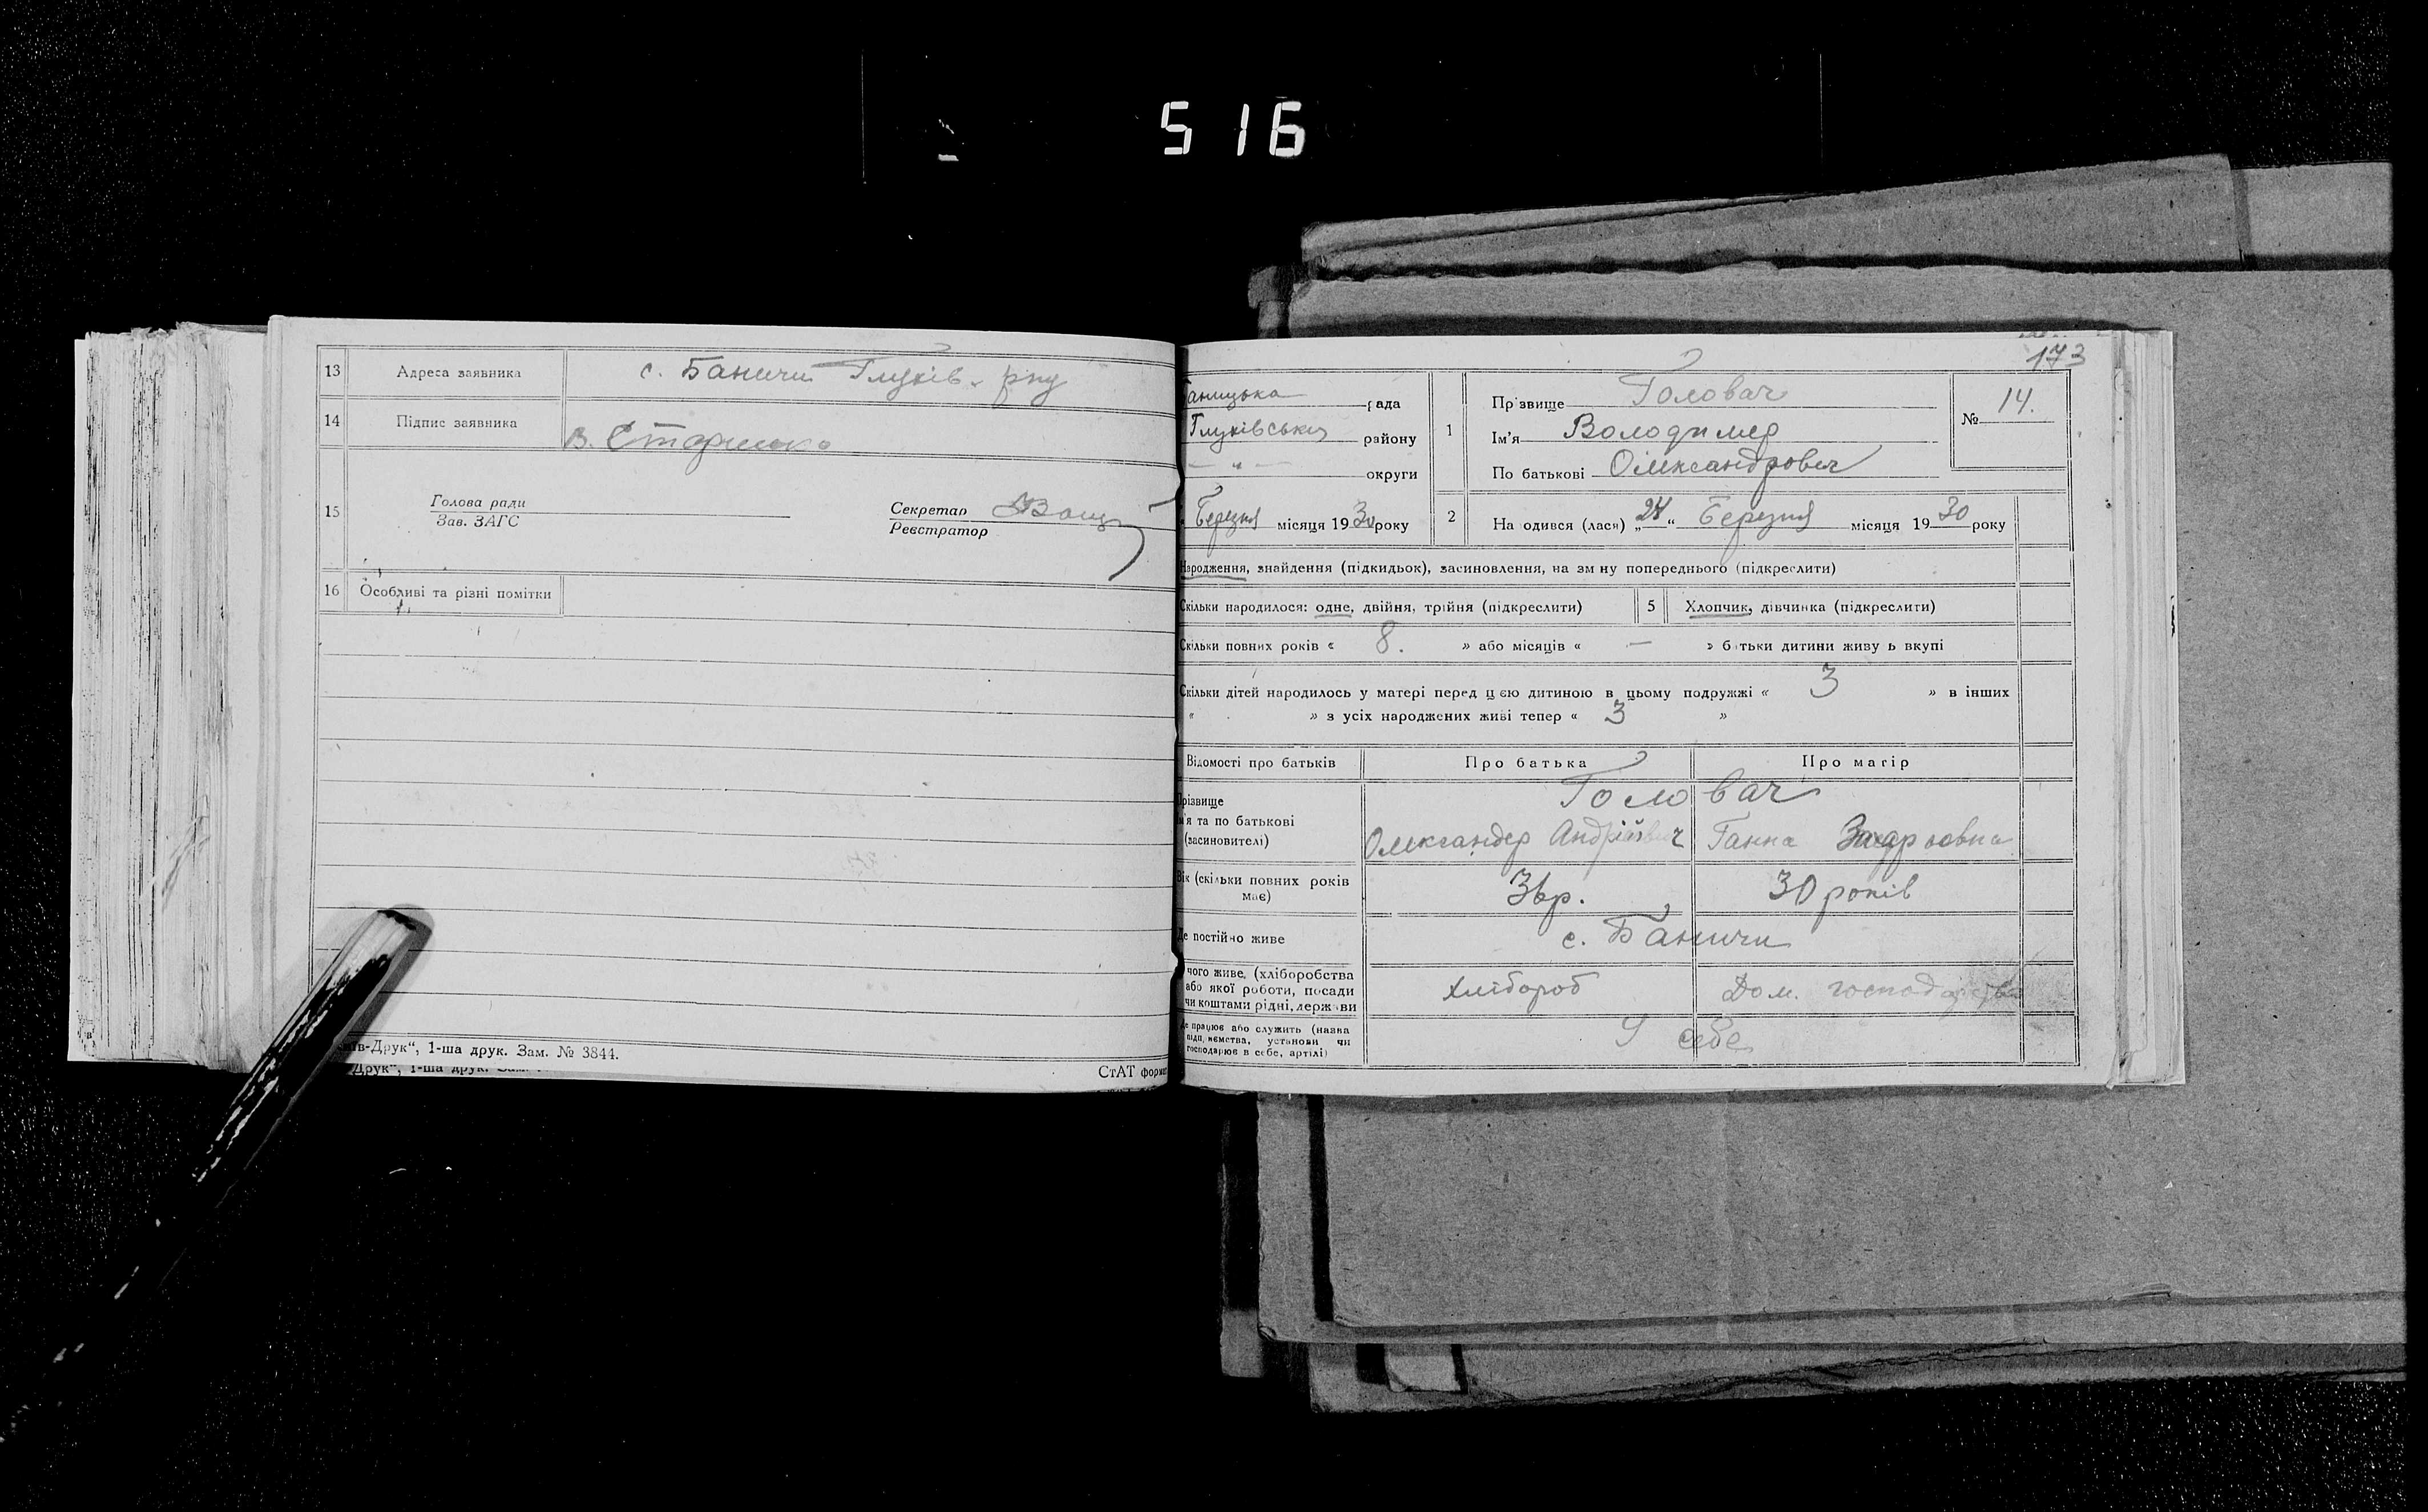 516
13 Адреса заявника с. Баничи Глухів. р-ну
14 Підпис заявника В.
15 Голова ради
Зав. ЗАГС
Секретар
Реєстратор
16 Особливі та різні помітки
в-Друк“, 1-ша друк. Зам. № 3844.
Друк“, 1-ша друк.
СтАТ формат
173
Баницька рада
Глухівськ району
— „ — округи
Березня місяця 1930 року
1 Прзвище Головач
Ім'я Володимер
По батькові Олександрович
№ 14.
2 На одився (лася) „24“ Березня місяця 1930 року
Народження, знайдення (підкидьок), засиновлення, на зм ну попереднього (підкреслити)
Скільки народилося: одне, двійня, трійня (підкреслити) 5 Хлопчик, дівчинка (підкреслити)
Скільки повних років « 8. » або місяців « — » б тьки дитини живу ь вкупі
Скільки дітей народилось у матері перед цею дитиною в цьому подружжі « 3 » в інших
« » з усіх народжених живі тепер « 3 »
Відомості про батьків Про батька Про матір
Прізвище
м'я та по батькові
(засиновителі)
Головач
Олександер Андрійович Ганна
Вік (скільки повних років
має)
36р. 30 років
Де постійно живе с. Баничи
чого живе, (хліборобства
або якої роботи, посади
чи коштами рідні, держ ви
Хлібороб Дом. господарство
Де працює або служить (назва
підп, иємства, установи чи
господарює в себе, артілі)
У себе